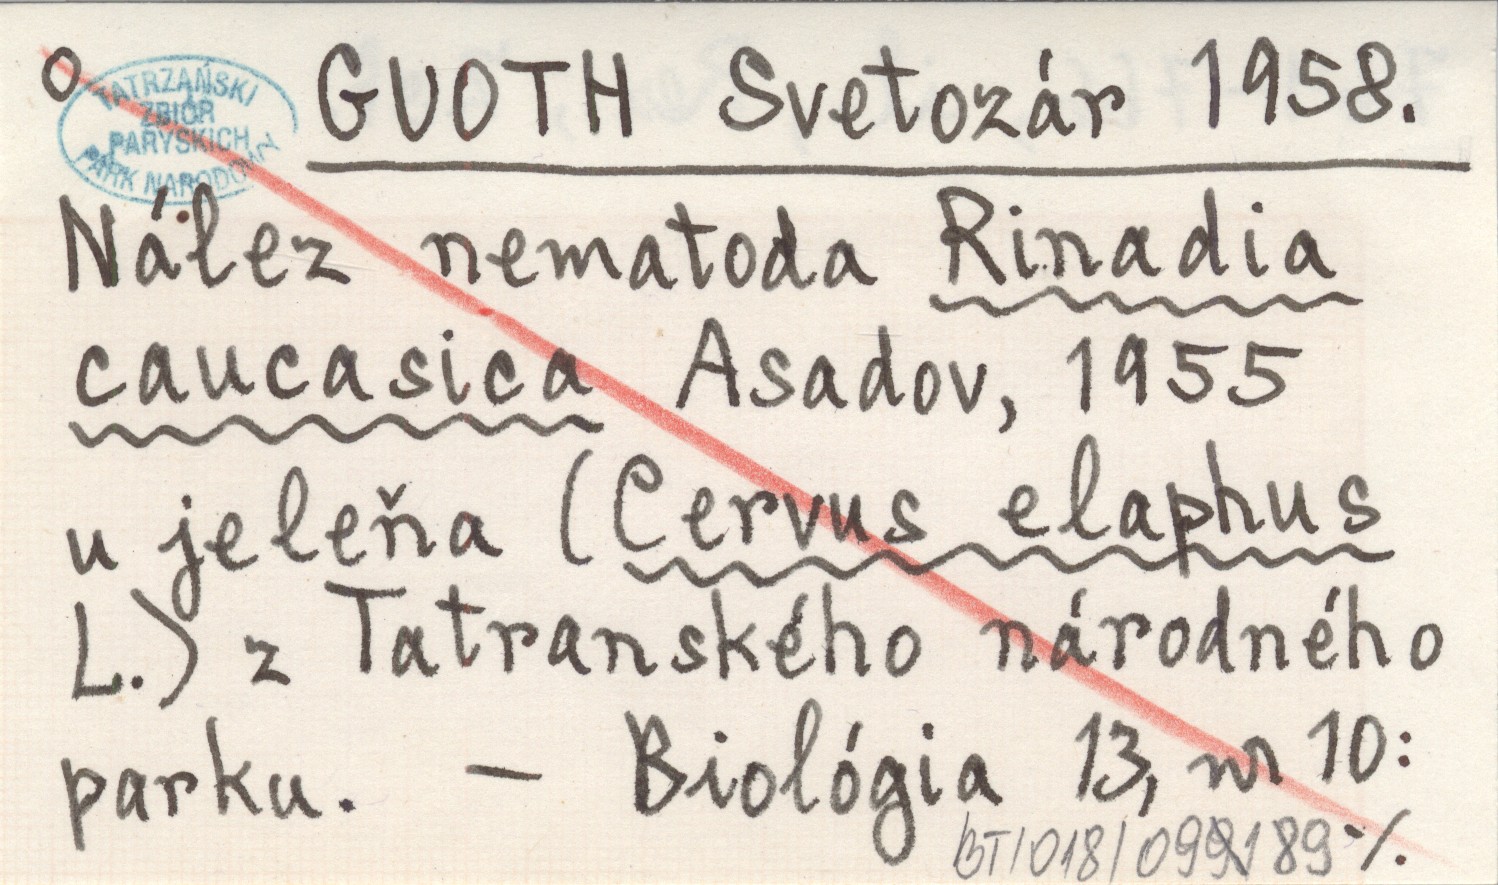 o
TATRZAŃSKI
ZBIÓR
PARYSKICH
PARK NARODOWY
GUOTH Svetozár 1958.
Nález nematoda Rinadia
caucasica Asadov, 1955
u jeleňa (Cervus elaphus
L.) z Tatranského národného
parku. — Biológia 13, nr 10:
BT/018/ 89 ·/.